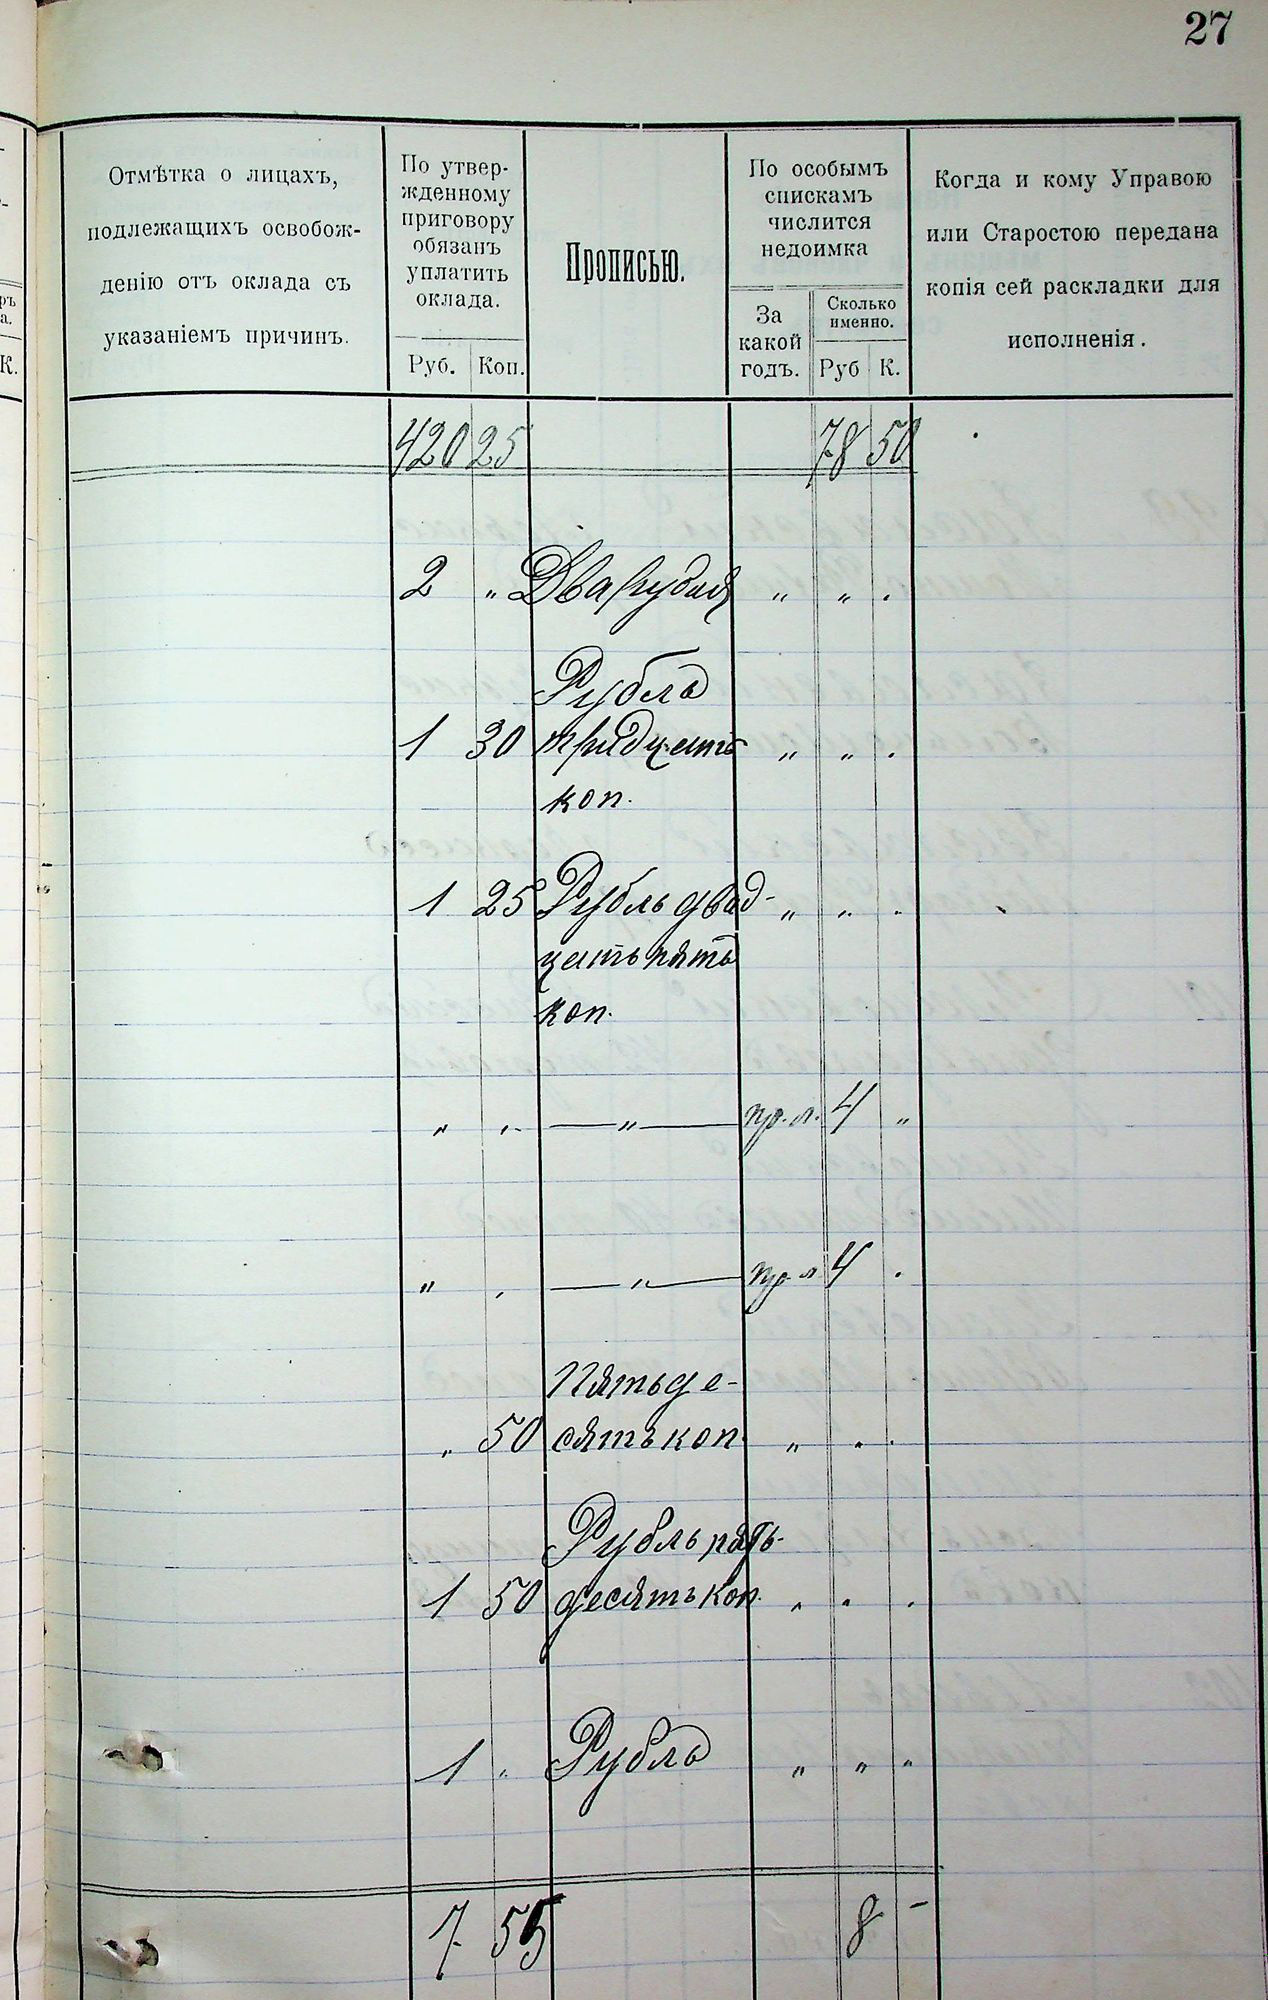 27
Отмѣтка о лицахъ,
подлежащихъ освобож-
денію отъ оклада съ
указаніемъ причинъ.
По утвер-
жденному
приговору
обязанъ
уплатить
оклада.
Руб. Коп.
Прописью.
По особымъ
спискамъ
числится
недоимка
За
какой
годъ.
Сколько
именно.
Руб К.
Когда и кому Управою
или Старостою передана
копія сей раскладки для
исполненія.
420 25 78 50
2 „ Два рубля „ „ .
Рубль
1 30 тридцать „ „ .
коп.
1 25 Рубль двад- „ „ .
цать пять
коп.
„ „ — „ — пр. л. 4 „
„ . — „ — пр. л 4 .
Пятьде-
„ 50 сять коп. „ . .
Рубль пять-
1 50 десять коп. „ . .
1 „ Рубль „ „ „
7 55 8 –
ръ
а.
К.